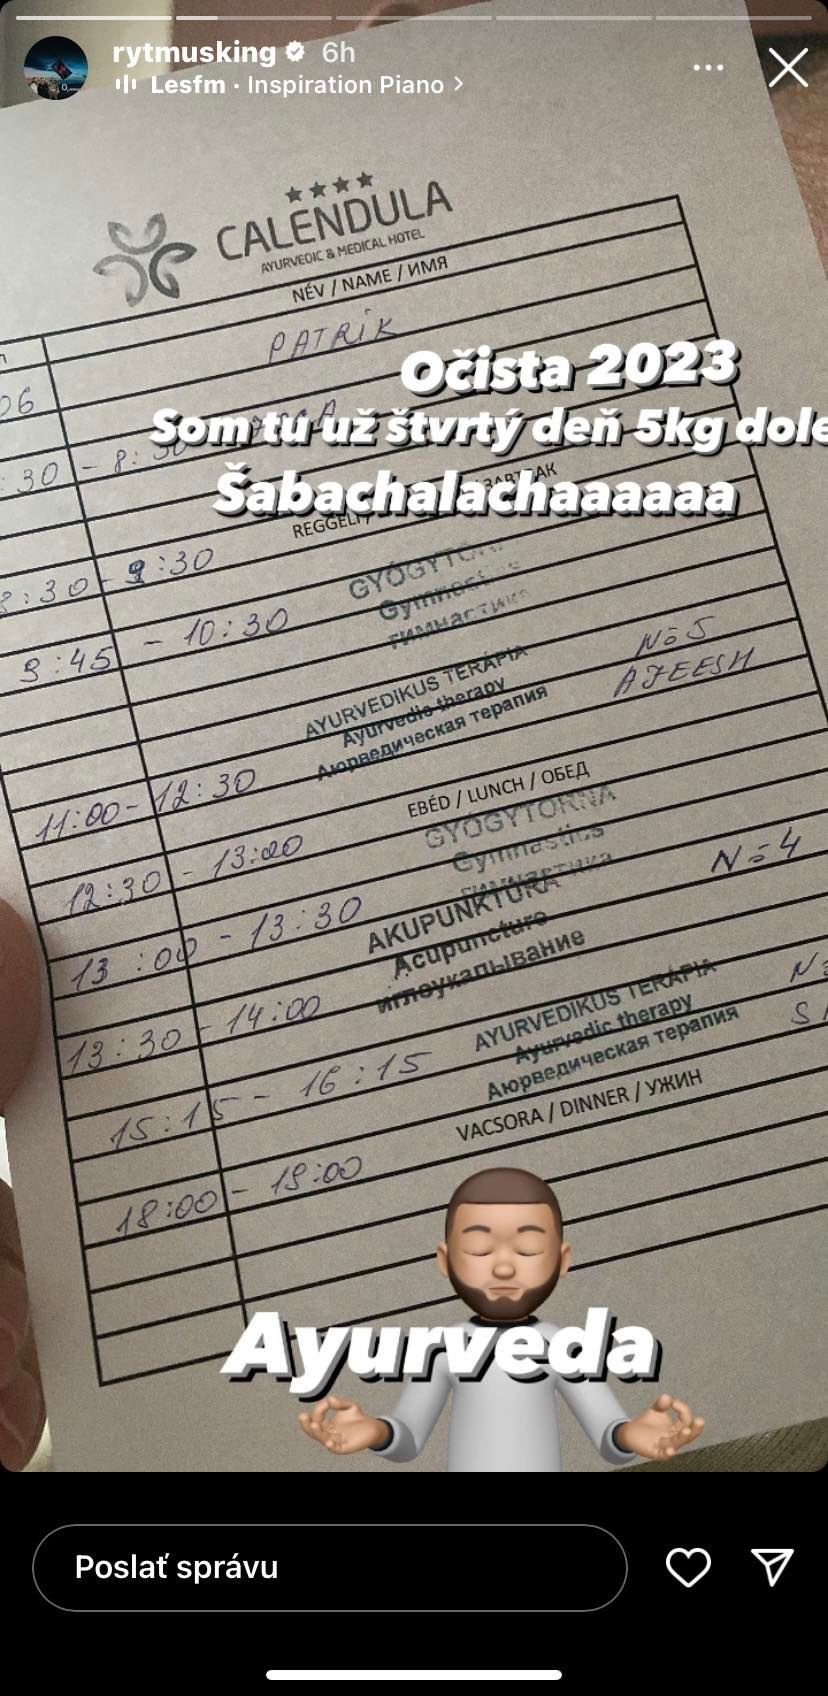 rytmusking 6h
Lesfm · Inspiration Piano >
CALENDULA
AYURVEDIC & MEDICAL HOTEL
NÉV / NAME / ИМЯ
PATRIK
Očista 2023
06
Som tu už štvrtý deň 5kg dole
:30 - 8:30
Šabachalachaaaaaa
REGGELI
8:30 - 9:30
GYÓGYTORNA
Gymnastics
гимнастика
9:45 - 10:30
No 5
AJEESH
AYURVEDIKUS TERÁPIA
Ayurvedic therapy
Аюрведическая терапия
11:00 - 12:30
EBÉD / LUNCH / ОБЕД
12:30 - 13:00
GYÓGYTORNA
Gymnastics
гимнастика
13:00 - 13:30
No 4
AKUPUNKTÚRA
Acupuncture
иглоукалывание
13:30 - 14:00
AYURVEDIKUS TERÁPIA
Ayurvedic therapy
Аюрведическая терапия
15:15 - 16:15
VACSORA / DINNER / УЖИН
18:00 - 19:00
Ayurveda
Poslať správu